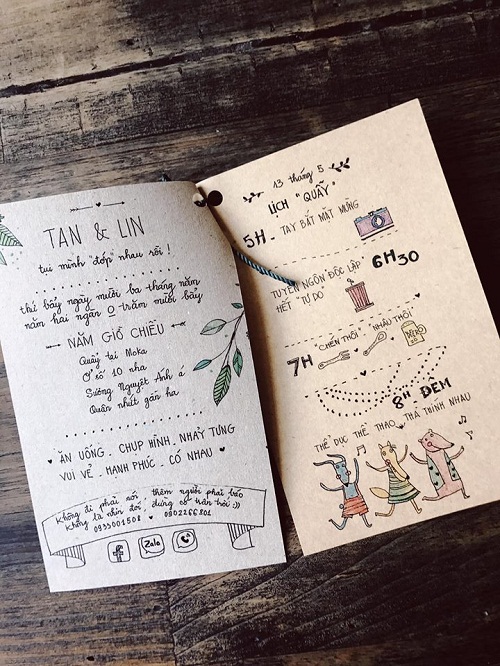 TAN & LIN
tui mình "đớp" nhau rồi !
thứ bảy ngày mười ba tháng năm
năm hai ngàn 0 trăm mười bảy
NĂM GIỜ CHIỀU
Quẩy tại Moka
Ở số 10 nha
Sương Nguyệt Ánh á
Quận nhứt gần hà
ĂN UỐNG . CHỤP HÌNH . NHẢY TƯNG
VUI VẺ . HẠNH PHÚC . CÓ NHAU
Không đi phải nói , thêm người phải báo
không là nhịn đói , đừng có trăn trối :))
0933001501 ♥ 0902266801
f Zalo
13 tháng 5
LỊCH " QUẨY
5H - TAY BẮT MẶT MỪNG
TUYÊN NGÔN ĐỘC LẬP 6H30
HẾT "TỰ DO
7H "CHÉN THÔI" - NHẬU THÔI
BEER
8H ĐÊM
THỂ DỤC THỂ THAO , THẢ THÍNH NHAU